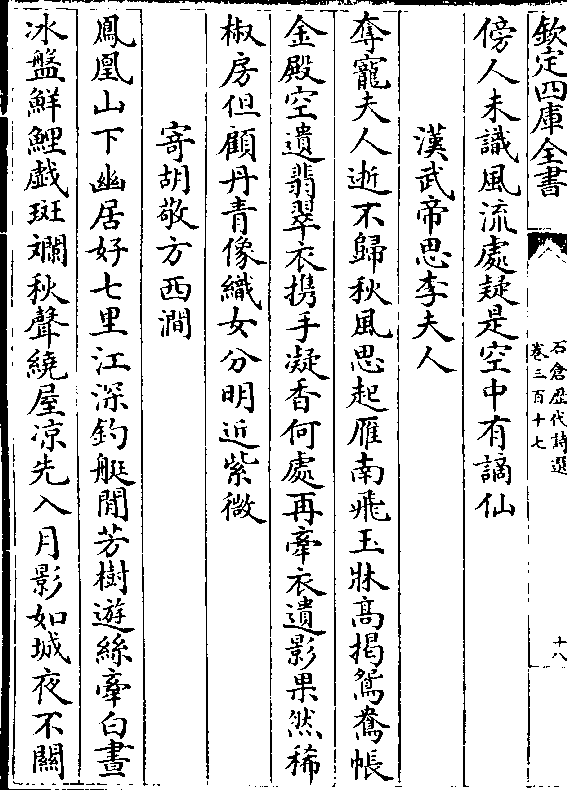 欽定四庫全書
石倉歷代詩選
卷三百十七
十八
傍人未識風流處疑是空中有謫仙
漢武帝思李夫人
奪寵夫人逝不歸秋風思起雁南飛玉牀高揭鴛鴦帳
金殿空遺翡翠衣携手凝香何處再牽衣遺影果然稀
椒房但顧丹青像織女分明近紫微
寄胡敬方西澗
鳳凰山下幽居好七里江深釣艇閒芳樹遊絲牽白晝
冰盤鮮鯉戯斑斕秋聲繞屋凉先入月影如城夜不關